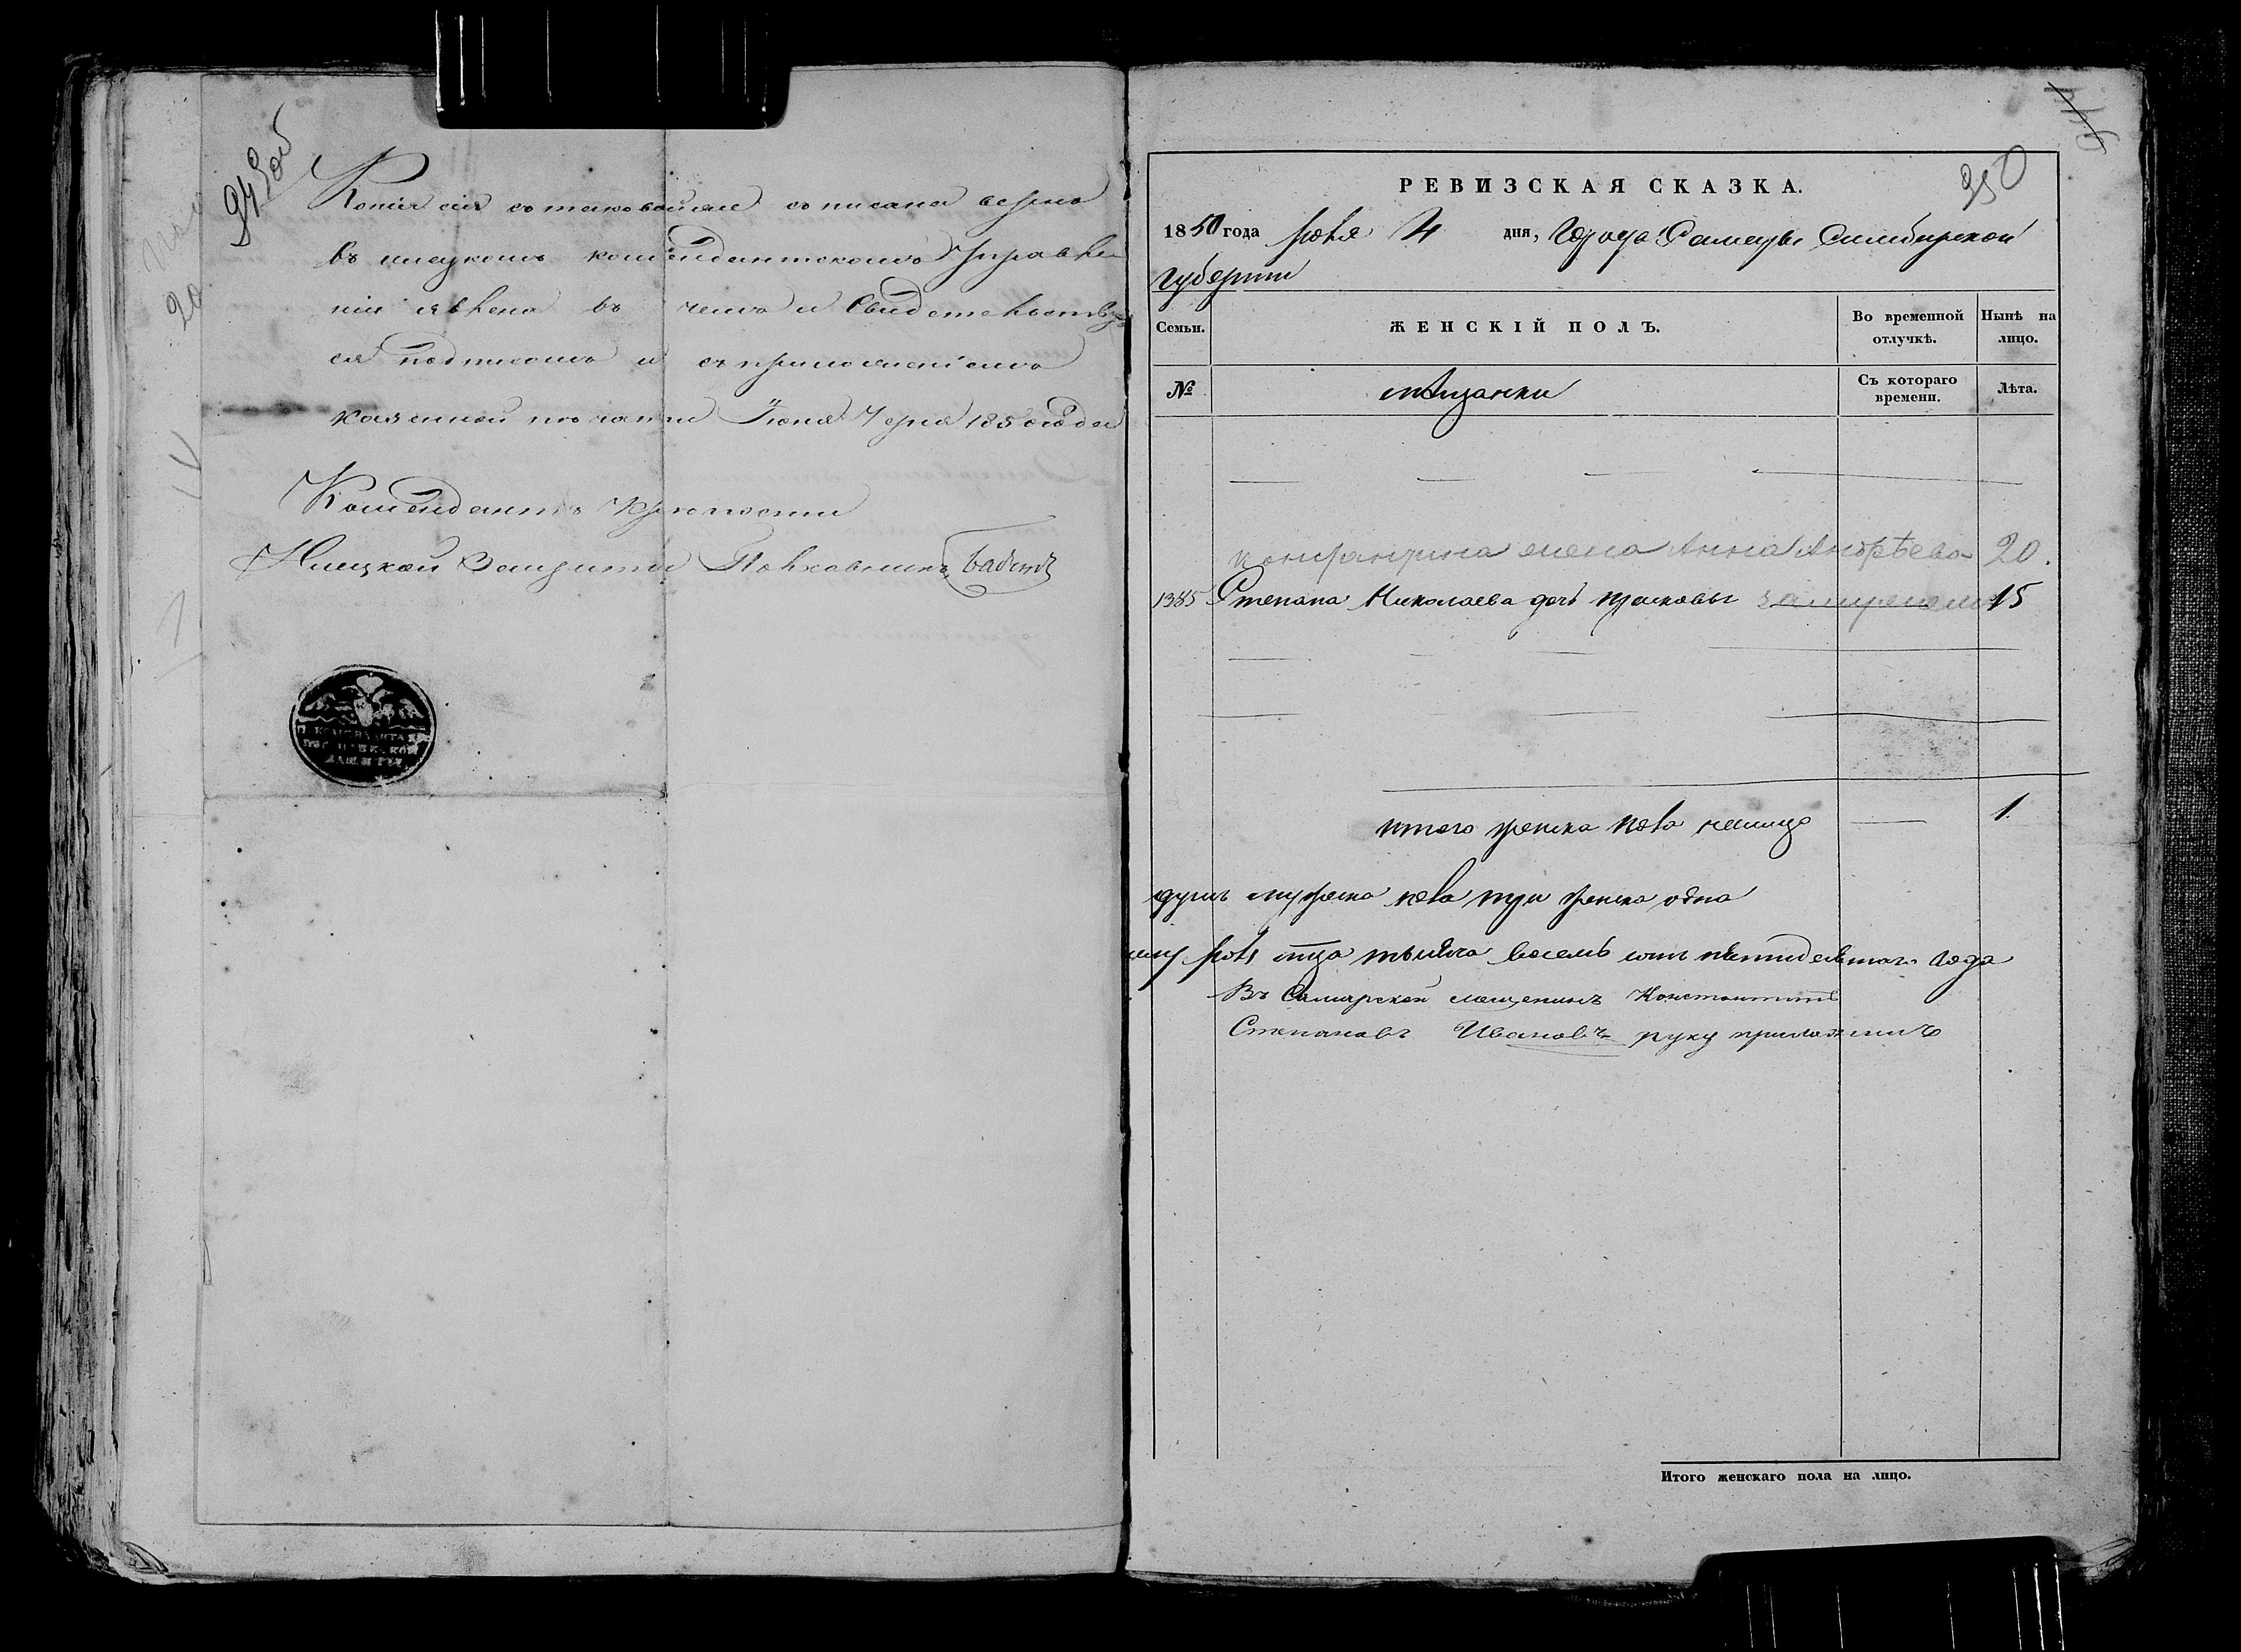 949 об
Копія сія съ таковой же списана верно
въ илецкомъ комендантскомъ Управле
ніи явлена въ чемъ и Свидетельствуе
ся подписомъ и съ приложеніемъ
казенной печати Іюня 7 дня 1850 года
Комендантъ Крепости
Илецкой Защиты Полковникъ
РЕВИЗСКАЯ СКАЗКА.
950
1850 года июля 4 дня, Города Самары Симбирской
губернии
Семьи.
ЖЕНСКІЙ ПОЛЪ.
Во временной отлучкѣ.
Нынѣ на лицо.
№
мѣщанки
Съ котораго времени.
Лѣта.
жена Анна Андрѣева 20.
1385 Степана Николаева дочь 15
итого женска пола налицо 1
душъ мужеска пола три женска одна
июля тысеча восемь сотъ пятидесятаго года
Самарской мещенинъ Константинъ
Степановъ Ивановъ руку приложилъ
Итого женскаго пола на лицо.